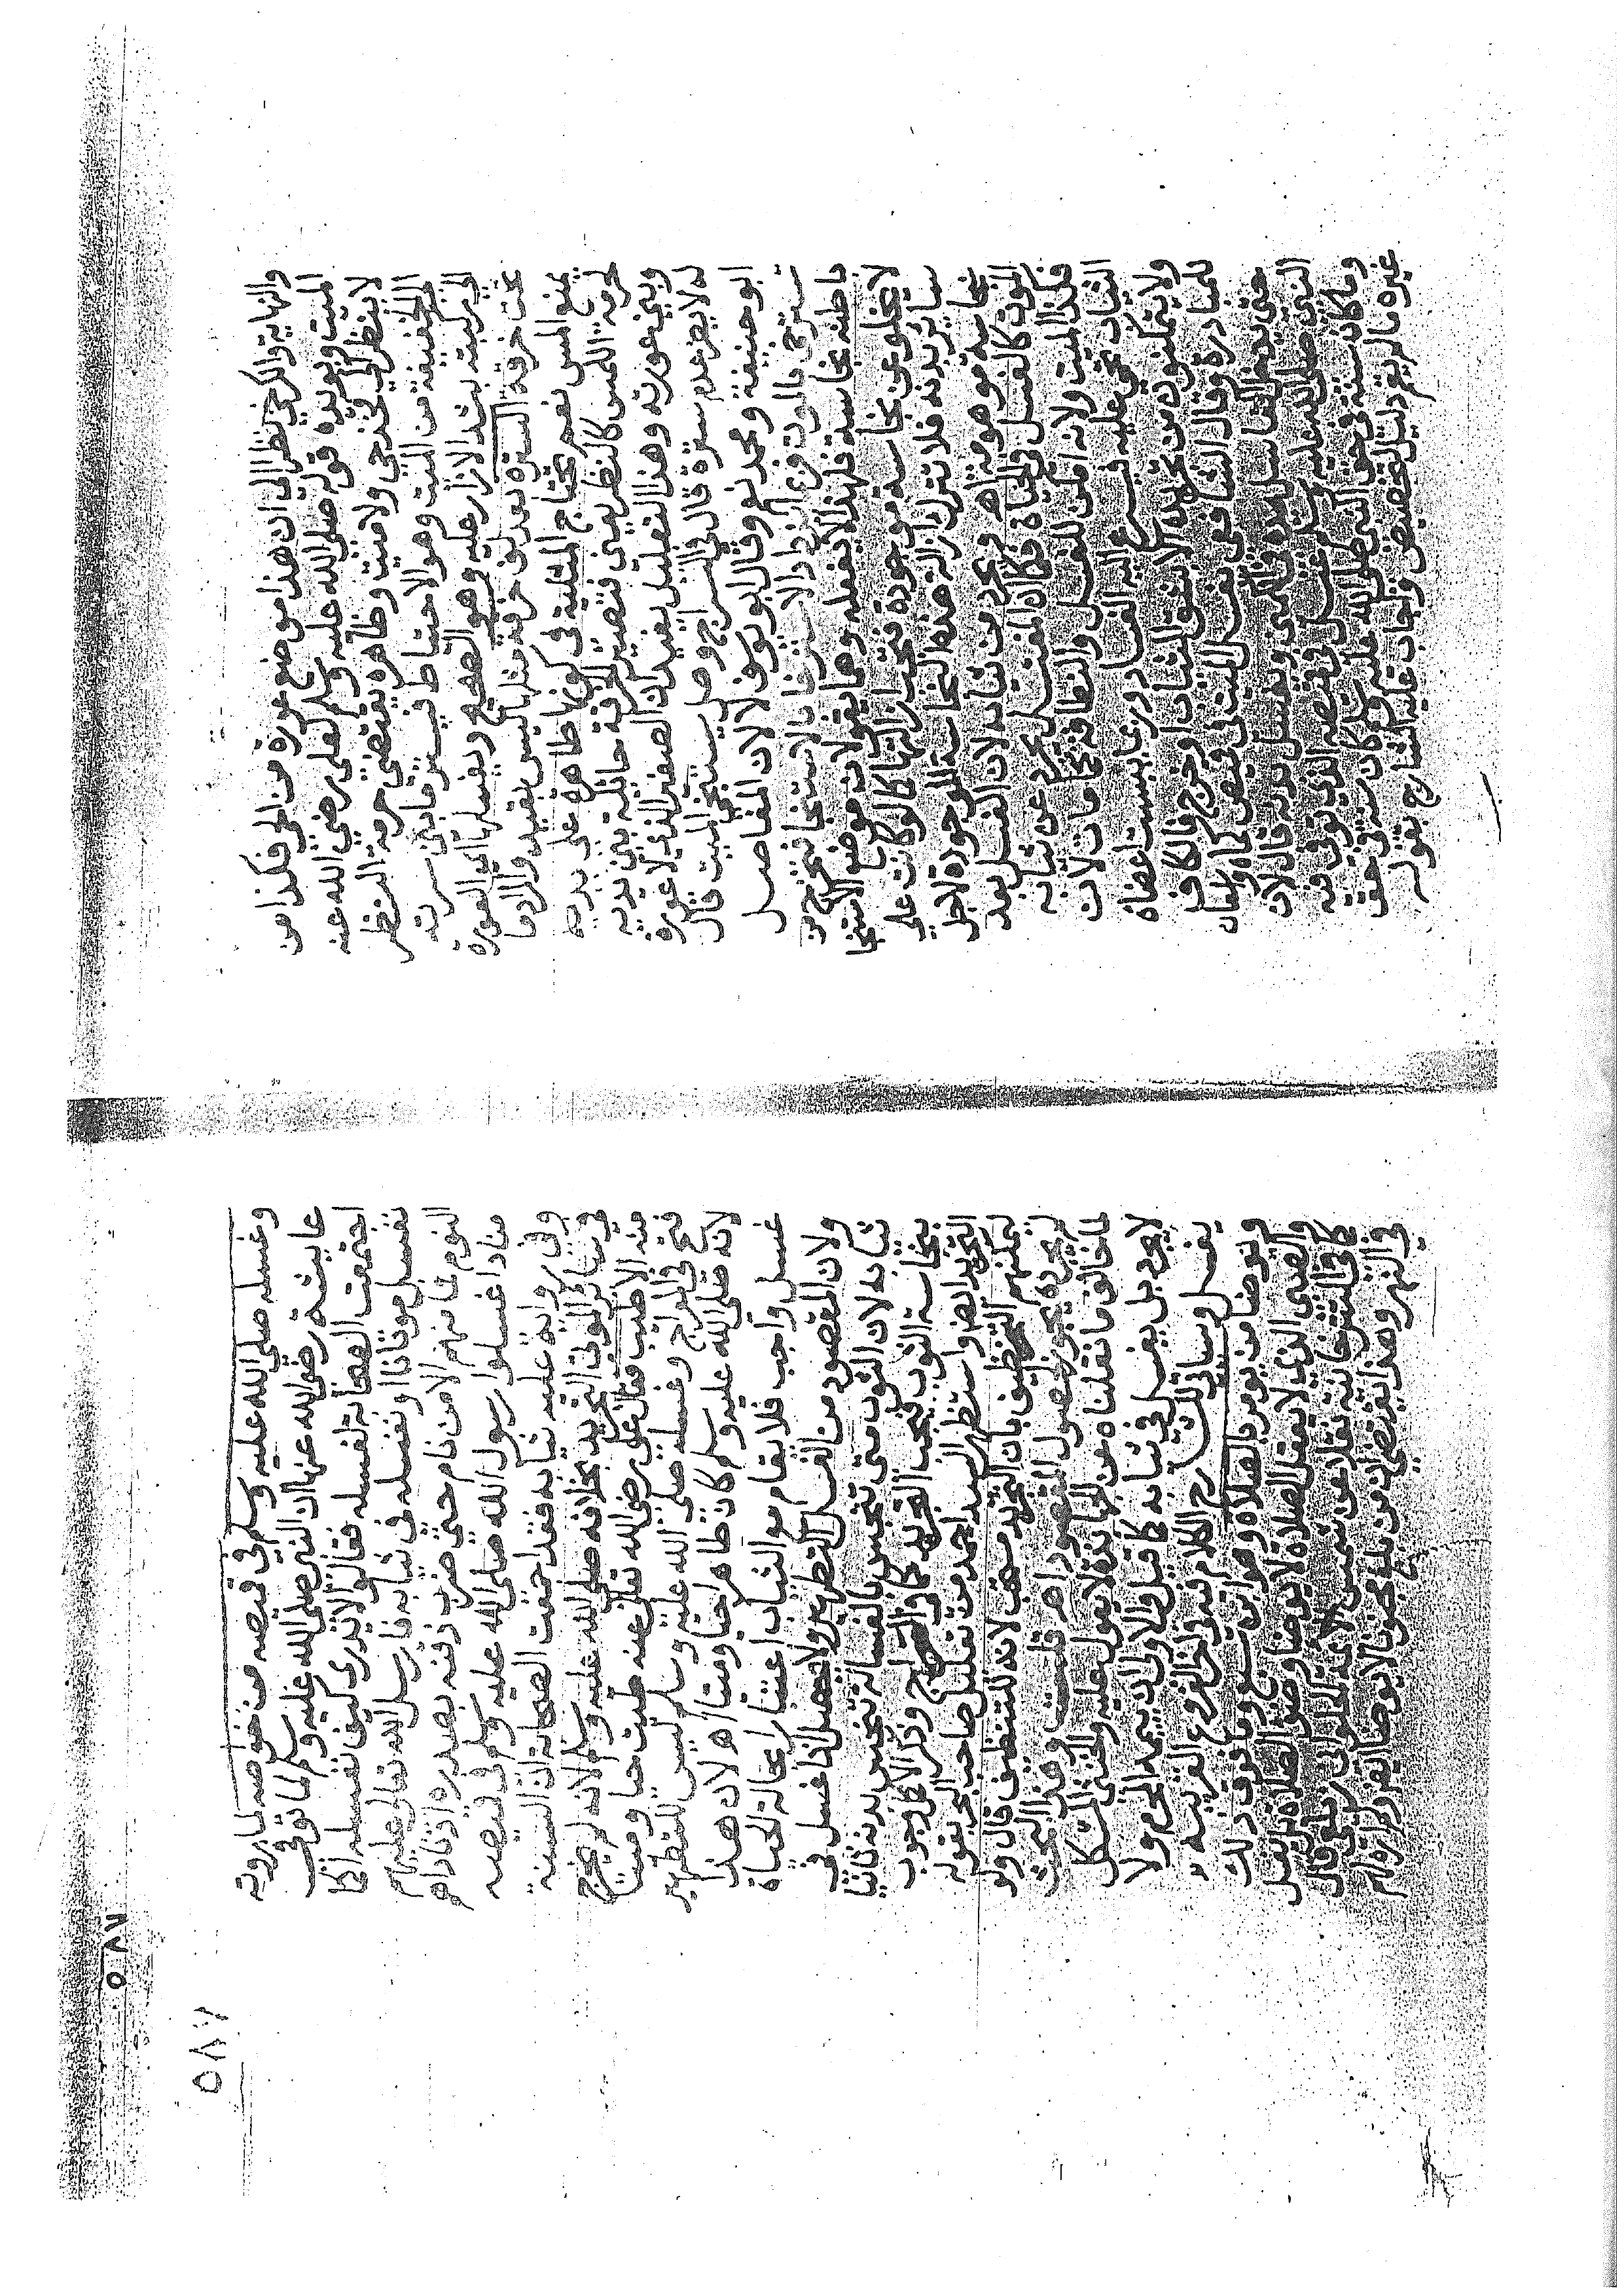 والنهاية والكرخي نظرا الى ان هذا موضع عورة من الحي فكذا من
الميت ويؤيده قوله صلى الله عليه وسلم لعلي رضي الله عنه
لا تنظر الى فخذ حي ولا ميت وظاهره يقتضي حرمة النظر
الى الخفيفة من الميت وهو الاحتياط فيستر ما بين سرته
الى ركبته بشد الازار عليه وهو الصحيح ويغسلها اي العورة
تحت خرقة السترة بعد لف خرقة مثلها ليس بقيد والمراد ما
يمنع المس نعم تحتاج المثلية في كونها طاهرة على يديه
لحرمة اللمس كالنظر يعني فتصير الخرقة حائلة بين يديه
وبين عورته وهذا التعليل يفيد ان الصغير الذي لا عورة
له لا يضر عدم سترة قال في السراج وهل يستنجي الميت قال
ابو حنيفة ومحمد نعم وقال ابو يوسف لا لان المفاصل
تسترخي بالموت فربما ازداد الاسترخاء بالاستنجا فتخرج من
باطنه نجاسة فلهذا لا يفعله وهما يقولان موضع الاستنجا
لا يخلو عن نجاسة موجودة فتجب ازالتها كما لو كانت على
سائر بدنه فلا تترك ازالة هذه النجاسة الموجودة لاجل
نجاسة موهومة اهـ ويجرد من ثيابه لان الغسل بعد
الموت كالغسل في الحياة فكما ان المغتسل يجرد عن ثيابه
فكذا الميت ولانه امكن للغسل والنظافة كما مات لان
الثياب تحمى عليه فيسرع اليه الفساد وربما يبست اعضاؤه
ولا يتمكنون من تجريده الا بشق الثياب او حرج قال كافي
للمبادرة وقال الشافعي يغسل الميت في قميص كما واسعان
حتى يدخل الغاسل يده في الكمين ويغسل بدنه قال لان
النبي صلى الله عليه وسلم غسل في قميصه الذي توفي فيه
وما كان سنة في حق النبي صلى الله عليه وسلم كان سنة في حق
غيره ما لم يقم دليل التخصيص واجاب عليه الشارح بقوله
٥٨٧
وغسله صلى الله عليه وسلم في قميصه من خصوصه لما روته
عائشة رضي الله عنها ان النبي صلى الله عليه وسلم لما توفي
اجتمعت الصحابة لغسله فقالوا لا ندري كيف نغسله اكما
نغسل موتانا او نغسله في ثيابه فارسل الله تعالى عليهم
النوم فما منهم الا من نام حتى ضرب ذقنه بصدره اذ ناداهم
مناد اغسلوا رسول الله صلى الله عليه وسلم في قميصه
وفي رواية عليه ثيابه فقد اجمعت الصحابة ان السنة
في سائر الموتى التجريد بخلافه صلى الله عليه وسلم لانه لم يخرج
منه الا طيب فقال علي رضي الله تعالى عنه طبت حيا وميتا
قال في المعراج وغسله صلى الله عليه وسلم ليس للتطهير
لانه صلى الله عليه وسلم كان طاهرا حيا وميتا اهـ لان هذا
غسل واجب فلا يقام مع الثياب اعتبارا بحالة الحياة
ولان المقصود من الغسل التطهير ولا يحصل اذا غسل في
ثيابه لان الثوب متى تنجس بالغسالة تنجس بدنه ثانيا
بنجاسة الثوب فيجب التجريد كما في السراج وذكر الاكمل وجوب
التجريد ايضا واستظهر السيد احمد من تعليل صاحب البحر بقوله
تجلبهم التنظيف بان التجريد مستحب لانه للتنظيف قال ولو
لم يجرده يجوز لحصول المقصود اهـ قلت وهذا البحث
مخالف ما نقلناه من البدائع لا يعول عليه والخنثى المشكل
لا يجرد بل يغسل في ثيابه كما قيل والاولى ان ييمم المحرم ولا
يغسل وسياتي لك شرح الكلام فيه في آخر الفرع القريبة
ويوضا من يومر بالصلاة وهو ابن سبع وما فوق ذلك
والصبي الذي لا يعقل الصلاة لا يوضا وضوء الصلاة ذا الغسل
كما في التترخانية نقلا عن شمس الائمة الحلواني زيلعي قال
في النهر وهذا يقتضي ان من بلغ مجنونا لا يوضا ايضا ولم اره لهم
٥٨٧